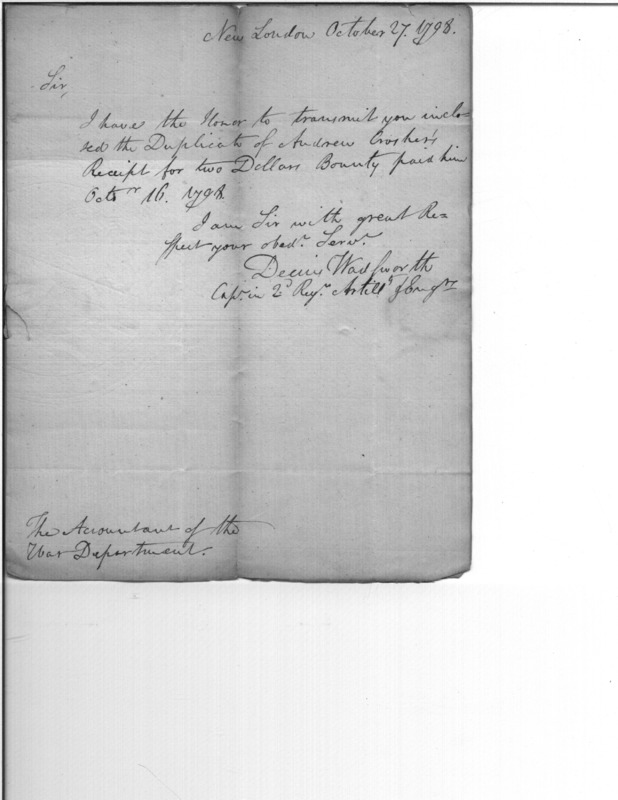 New London October 27. 1798.
Sir,
I have the Honor to transmit you inclo-
sed the Duplicate of Andrew Crosher's
Receipt for two Dollars Bounty paid him
Octo.r 16. 1798.
I am Sir with great Re=
spect your obed.t Serv.t
Decius Wadsworth
Cap.t in 2.d Reg.t Artill.s & Eng.rs
The Accountant of the
War Department.